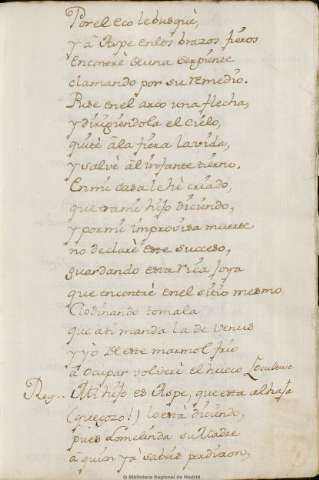 Por el eco le busquè,
y à Aspe en los brazos fieros
encontrè de una serpiente
clamando por su remedio.
Puse en el arco una flecha,
y dirigiendola el Cielo,
quitè à la fiera la vida,
y salvè al infante tierno.
En mi casa le hè criado,
que era mi hijo diciendo,
y por mi improvisa muerte
no declarè este suceso,
guardando esta rica joya
que encontrè en el sitio mesmo
tomala
que à ti manda la de Venus
y yo de este marmol frio
à ocupar volverè el hueco
Rey.. Mi hijo es Aspe, que esta alhaja
(que gozo!) lo està diciendo,
pues
à quien ya sabeis perdieron,
© Biblioteca Regional de Madrid